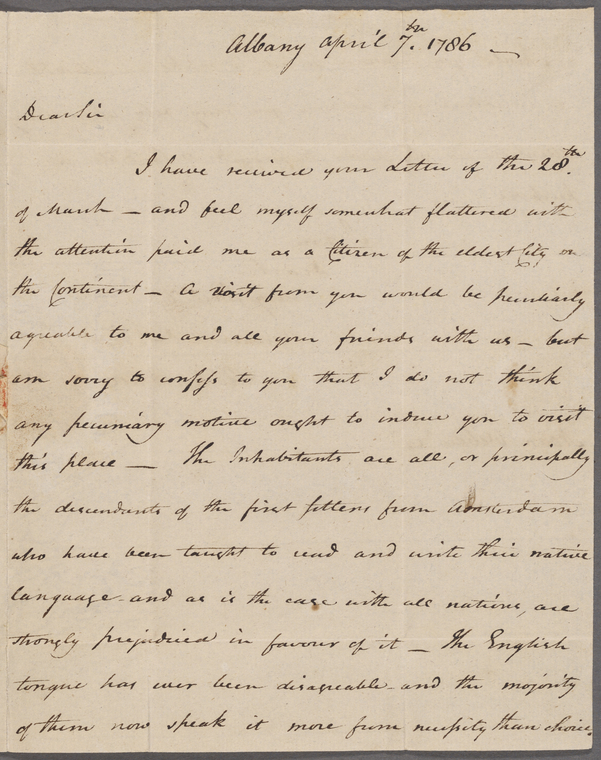 Albany April 7.th 1786 —
Dear Sir
I have received your Letter of the 28.th
of March — and feel myself somewhat flattered with
the attention paid me as a Citizen of the eldest City on
the Continent — A visit from you would be peculiarly
agreable to me and all your friends with us — but
am sorry to confess to you that I do not think
any pecuniary motive ought to induce you to visit
this place — The Inhabitants are all, or principally
the descendants of the first settlers from Amsterdam
who have been taught to read and write their native
language - and as is the case with all nations, are
strongly prejudiced in favour of it — The English
tongue has ever been disagreable - and the majority
of them now speak it more from necessity than choice.